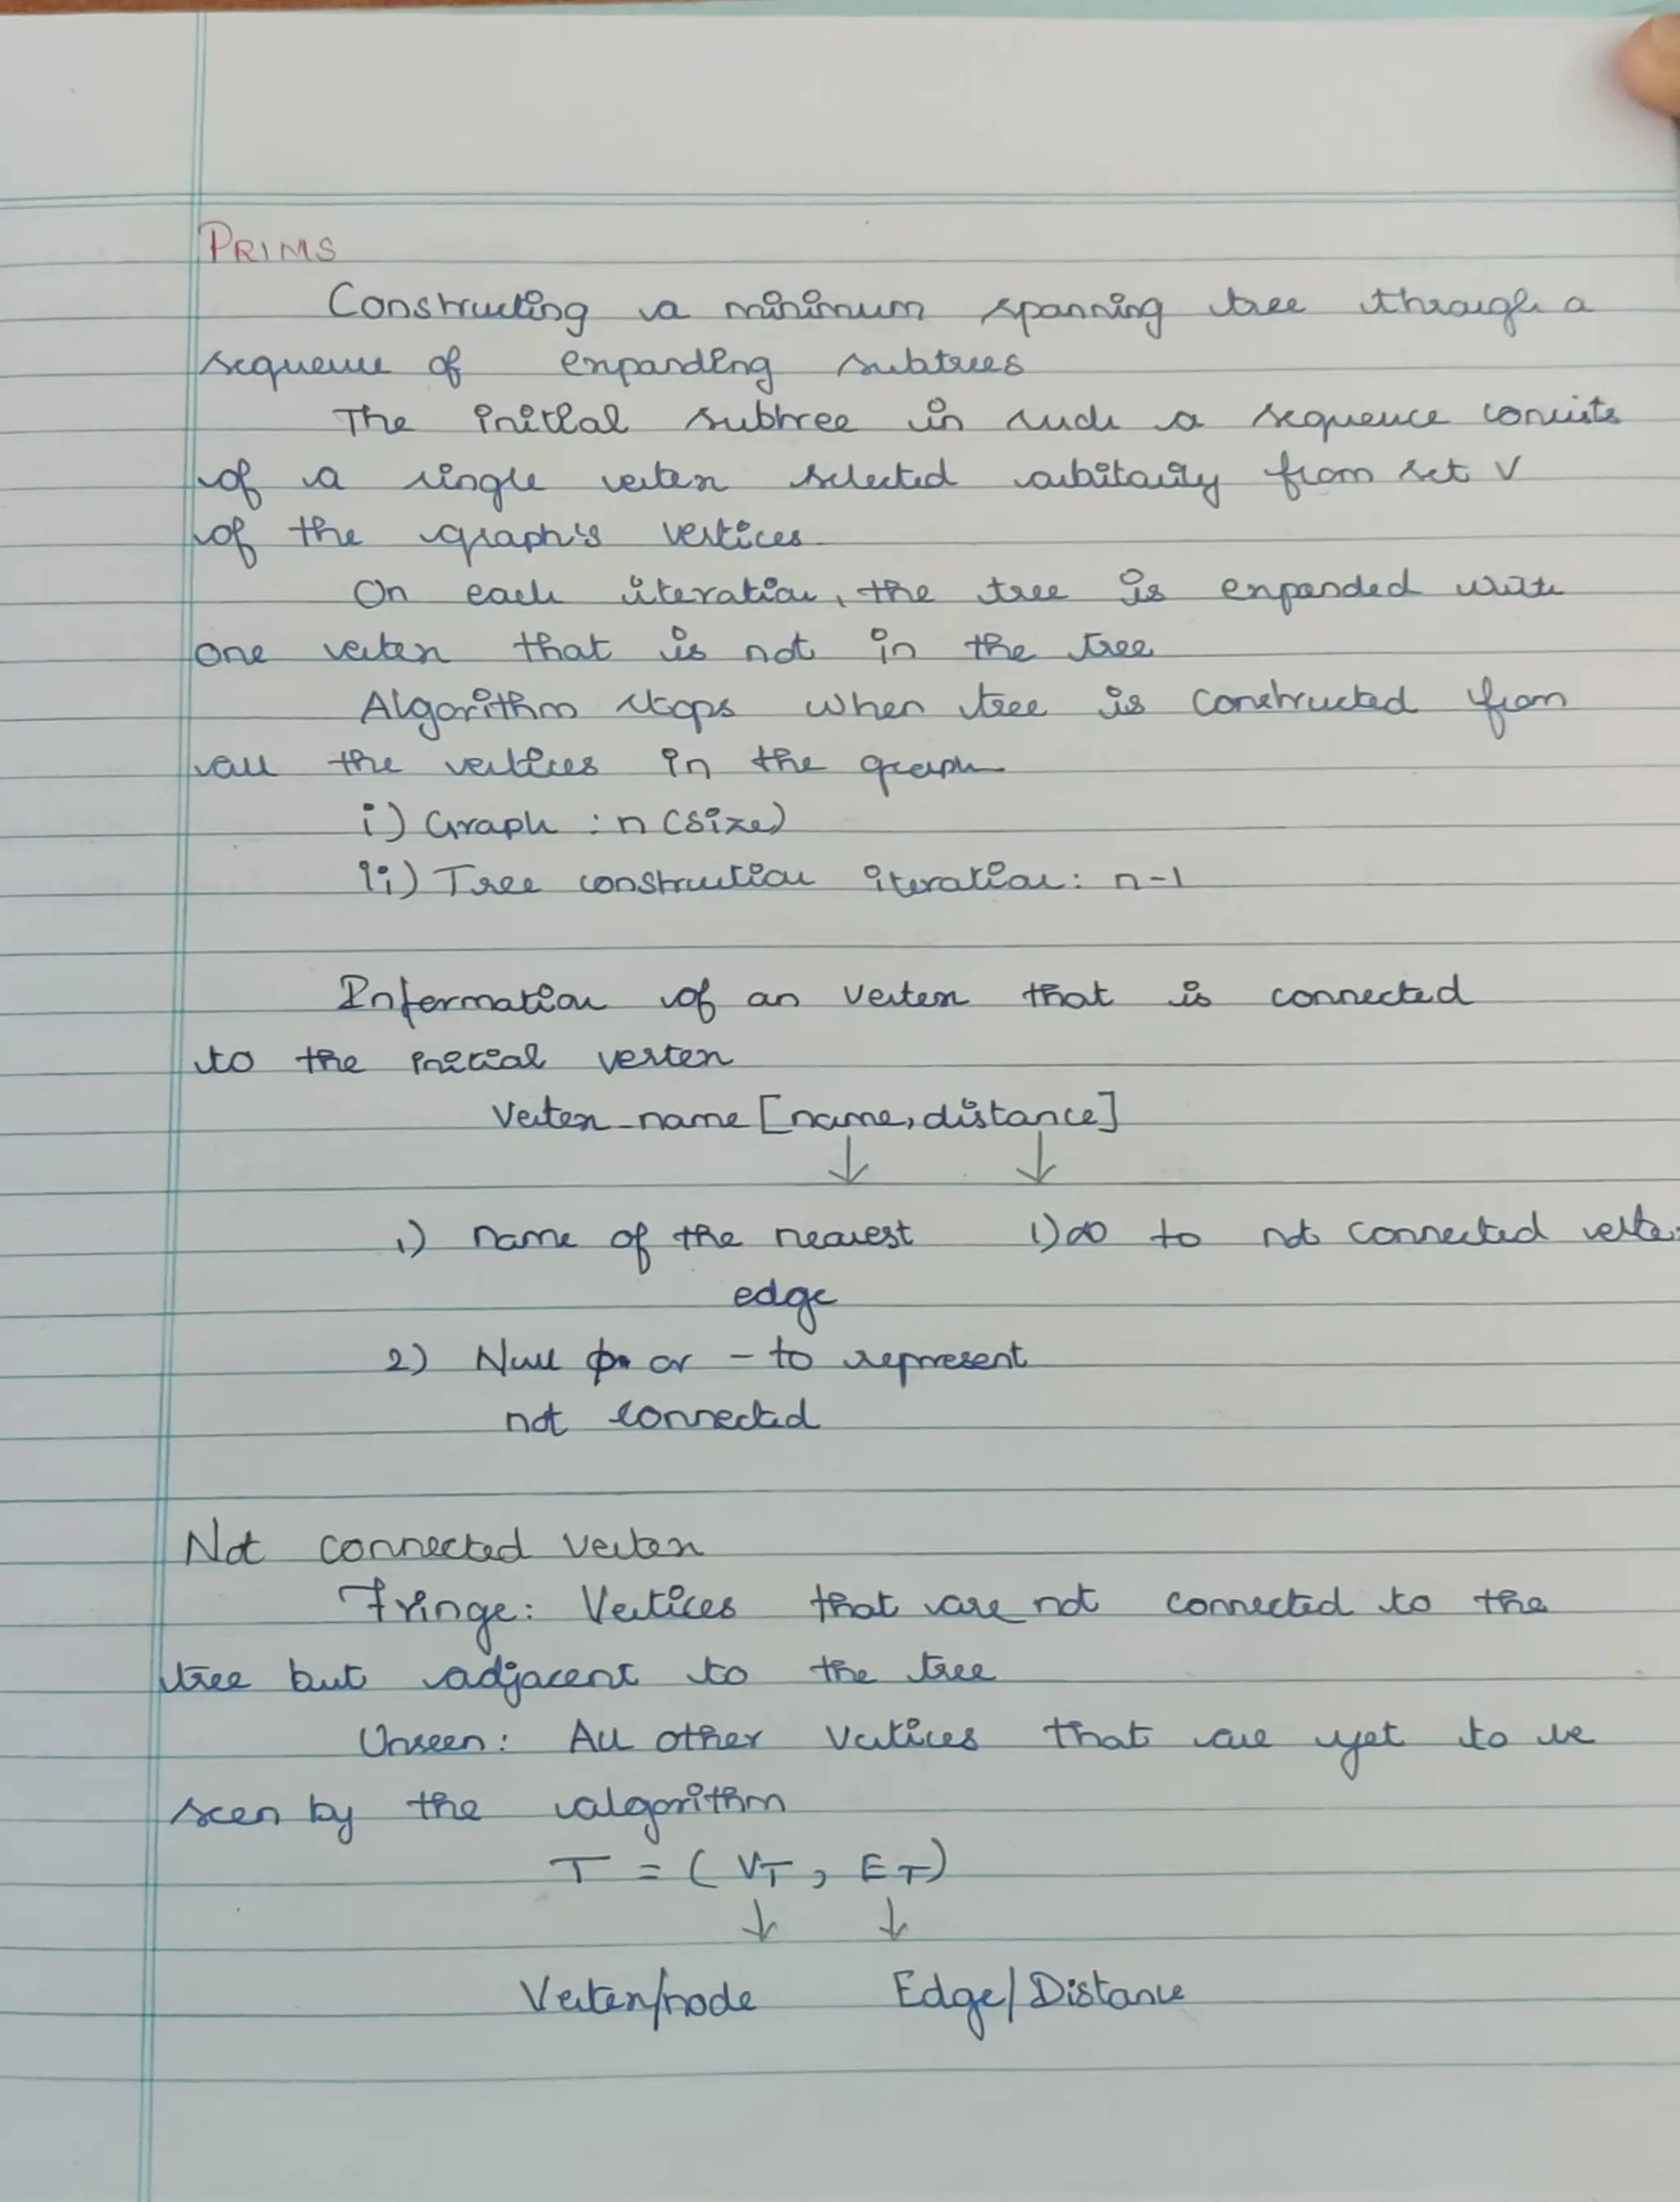 PRIMS
Constructing a minimum spanning tree through a
sequence of expanding subtrees
The initial subtree in such a sequence consists
of a single vertex selected arbitarily from set V
of the graph's vertices.
On each iteration, the tree is expanded with
one vertex that is not in the tree
Algorithm stops when tree is constructed from
all the vertices in the graph
i) Graph : n (size)
ii) Tree construction iteration: n-1
Information of an vertex that is connected
to the initial vertex
Vertex name [name, distance]
↓ ↓
1) name of the nearest 1) ∞ to not connected vertex
edge
2) Null or - to represent
not connected
Not connected vertex
Fringe: Vertices that are not connected to the
tree but adjacent to the tree
Unseen: All other vertices that are yet to be
seen by the algorithm
T = ( V_T , E_T )
↓ ↓
Vertex/node Edge/Distance